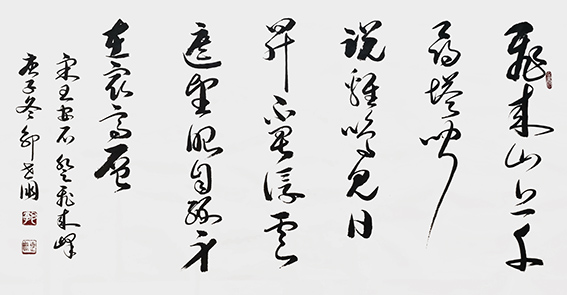 飛来山上千
尋塔聞
説雞鳴見日
昇不畏浮雲
遮望眼自緣身
在最高層
宋王安石登飛来峰
庚子冬